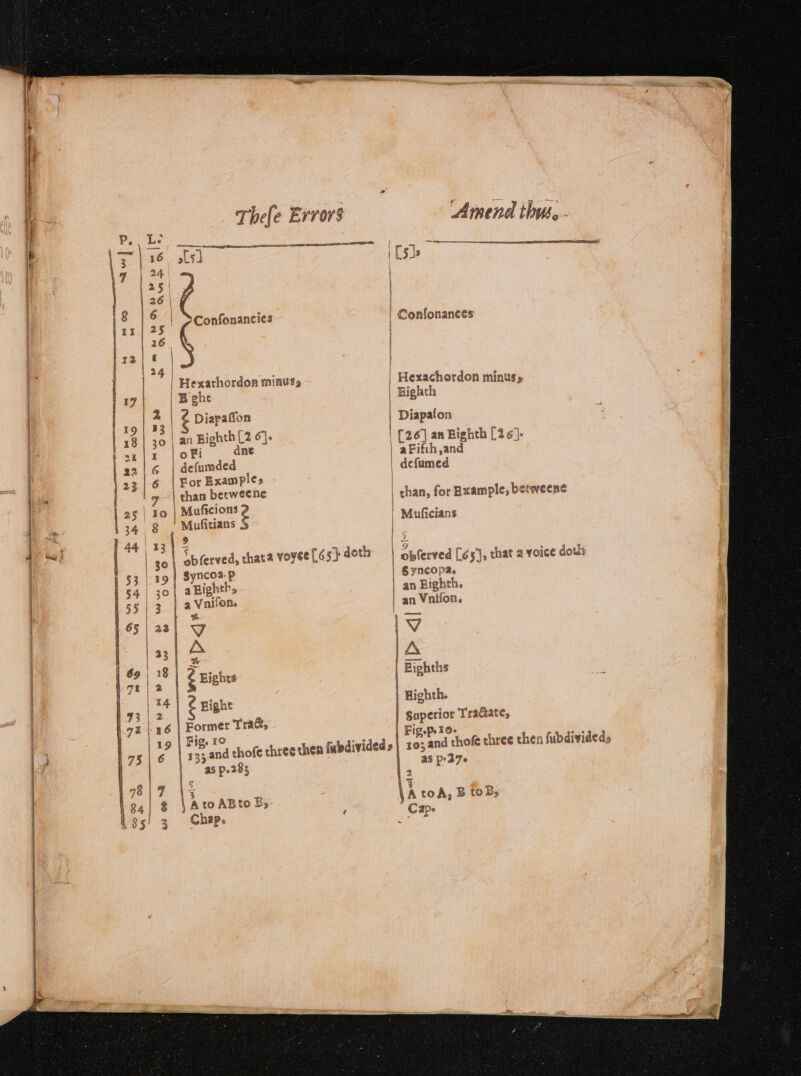 Theſe Errors Amend thus.
P. L.
3 16 ,[5] [5],
7 24
25
26
8 6 Conſonancies Conſonances
11 25
26
12 1
24 Hexarhordon minus, Hexachordon minus,
17 E ght Eighth
2 Diapaſſon Diapaſon
19 33
18 30 an Eighth [2 6]. [26] an Eighth [26].
21 1 o Fi dne a Fifth ,and
22 6 deſumded deſumed
23 6 For Example,
7 than betweene than, for Example, betweene
25 10 Muſicions Muſicians
34 8 Muſitians
44 13 9 9
30 obſerved, that a voyce [65} doth obſerved [65], that a voice doth
53 19 Syncoa p Syncopa.
54 30 a Eighth, an Eighth.
55 3 a Vniſon. an Vniſon.
65 22 ▽ ▽
23 △ △
69 18 Eights Eighths
71 2
14 Eight Eighth.
73 2
72 16 Former Tract, Superior Tractate,
19 Fig. 10 Fig.p.10.
75 6 135 and thoſe three then ſubdivided, 105 and thoſe three then ſubdivided,
as p.285 as p.27.
78 7 5 3 2 3
84 8 A to AB to B, A to A, B to B,
85 3 Chap. Cap.